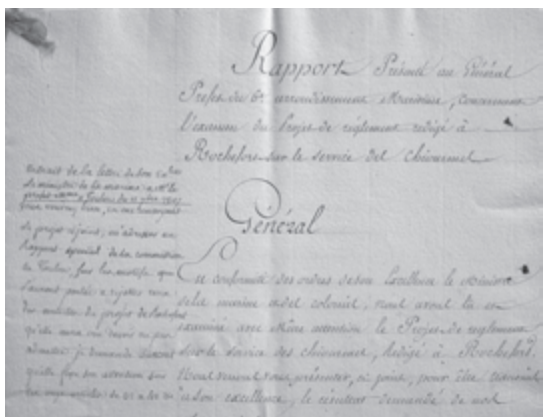 Rapport Présenté au Général
Préfet du 6e arrondissement Maritime, concernant
l'examen du Projet de réglement redigé à
Rochefort sur le service des chiourmes
Extrait de la lettre de Son Exc.
le ministre de la marine à Mr le
préfet à Toulon du
de projet ci joint, m'adresser un
Rapport spécial de la commission
de Toulon, sur les motifs qui
l'auront portée à rejetter ceux
des articles du projet de Rochefort
qu'elle aura cru devoir ne pas
admettre. je demande
qu'elle fixe son attention sur
les articles de 21 à
Général
En conformité des ordres de son Excellence le Ministre
de la marine et des colonies, nous avons lû et
examiné avec attention le Projet de réglement
sur le service des chiourmes, redigé à Rochefort.
Nous venons vous présenter, ci joint, pour être transmis
à son excellence, le résultat demandé de nos